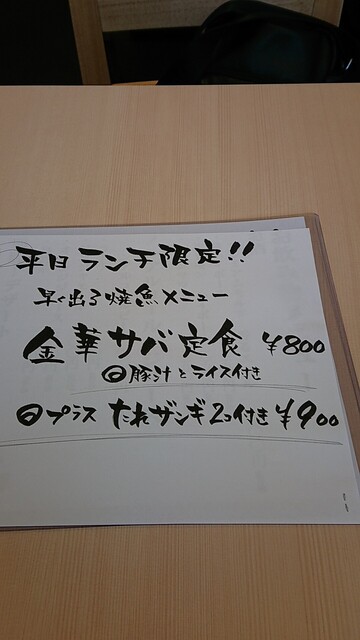 平日ランチ限定!!
早く出る焼魚メニュー
金華サバ定食 ¥800
◎豚汁とライス付き
◎プラス たれザンギ2コ付き ¥900